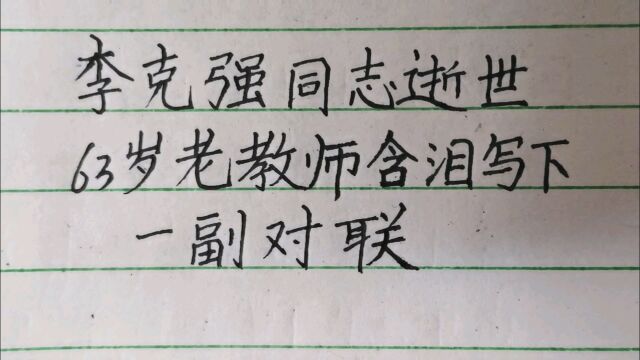 李克强同志逝世
63岁老教师含泪写下
一副对联